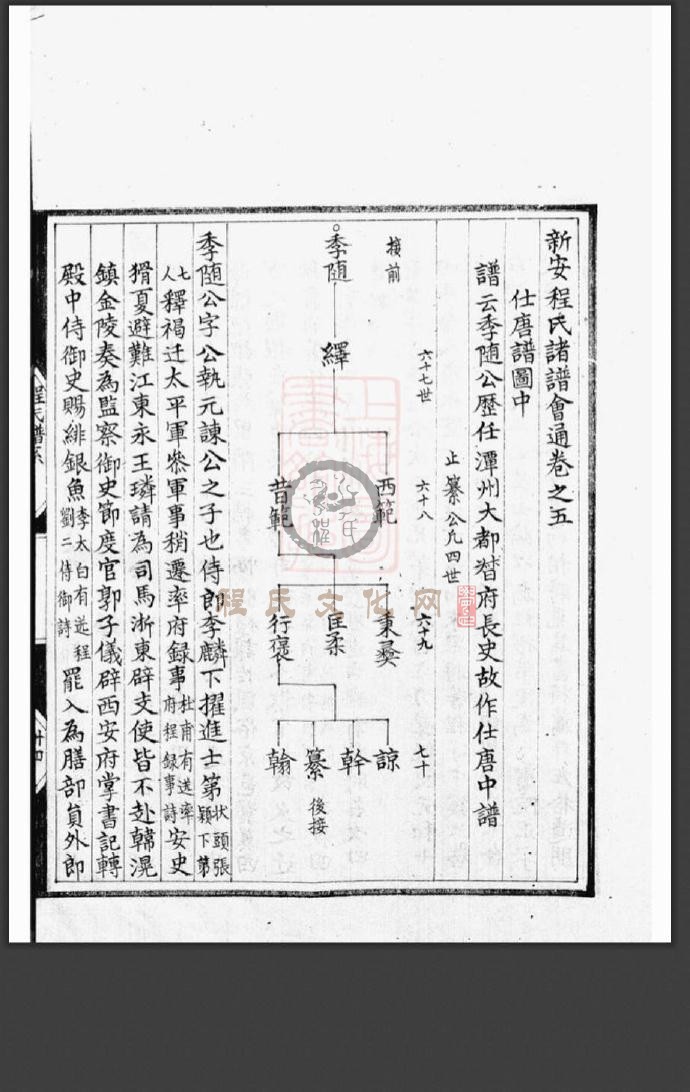 新安程氏諸譜會通卷之五
仕唐譜圖中
譜云季随公歷任潭州大都督府長史故作仕唐中譜
止纂公凢四世
六十七世
六十八
六十九
七十
接前
季随
繹
西範
昔範
秉彝
匡柔
行褒
諒
幹
纂
後接
翰
季随公字公執元諫公之子也侍郎李麟下擢進士第狀頭張
頴下第
七
人釋褐迁太平軍叅軍事稍遷率府録事杜甫有送率
府程録事詩安史
猾夏避難江東永王璘請為司馬浙東辟支使皆不赴韓滉
鎮金陵奏為監察御史節度官郭子儀辟西安府掌書記轉
殿中侍御史賜緋銀魚李太白有送程
劉二侍御詩罷入為膳部負外郎
程氏譜系
十四
程氏文化网